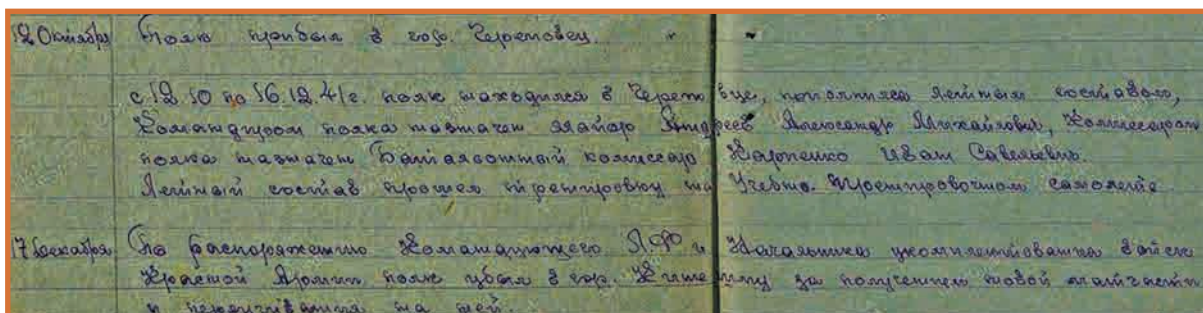 12 Октября Полк прибыл в гор. Череповец.
с 12.10 по 16.12.41г. полк находился в Черепо вце, пополнился летным составом,
Командиром полка назначен майор Андреев Александр Михайлович, Комиссаром
полка назначен Батальонный комиссар Карпенко Иван Савельевич.
Летный состав прошел тренировку на Учебно-Тренировочном самолете
17 Декабря По распоряжению Командующего ЛФ и Начальника укомплектования войск
Красной Армии полк убыл в гор. за получением новой матчасти
и переучивания на ней.